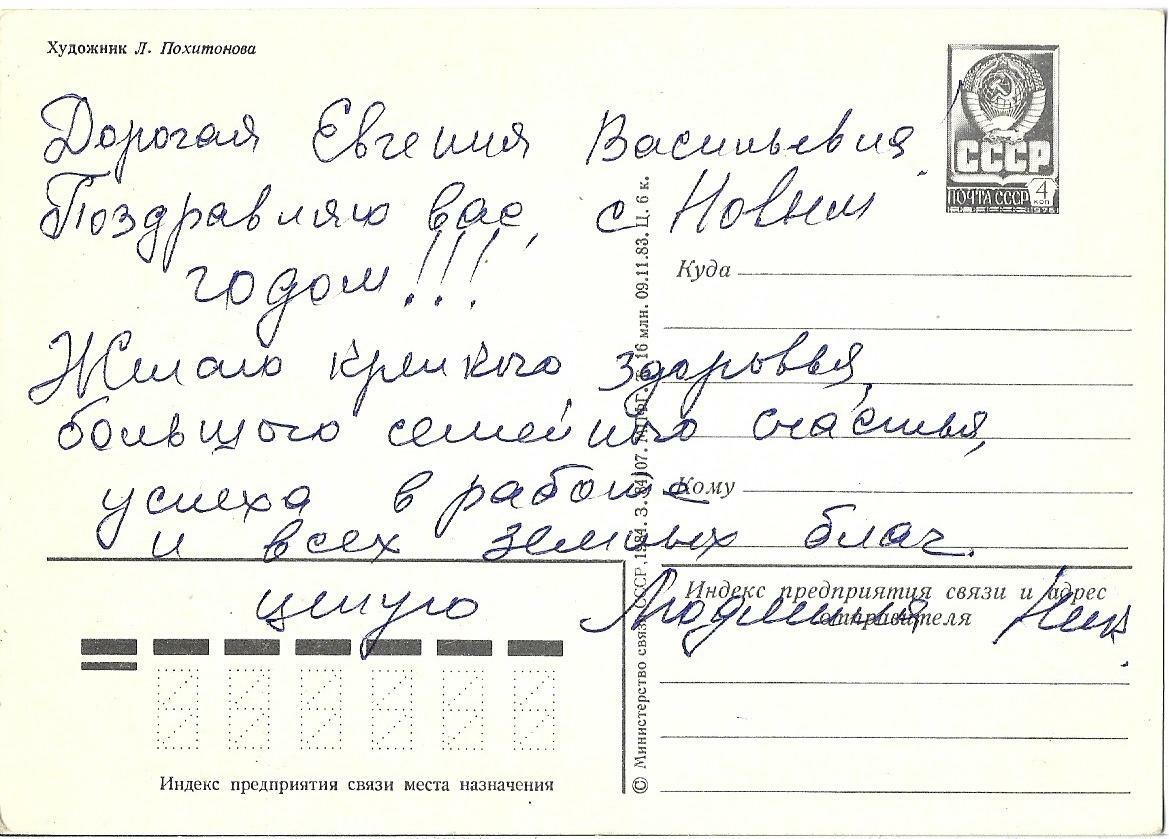 Художник Л. Похитонова
СССР
ПОЧТА СССР 4 коп
Дорогая Евгения Васильевна
Поздравляю вас, с Новым
годом!!!
Желаю крепкого здоровья,
большого семейного счастья,
успеха в работе
и всех земных благ.
целую Людмила Ник.
Куда
Кому
Индекс предприятия связи и адрес
отправителя
Индекс предприятия связи места назначения
© Министерство связи СССР, 1984. З. 84107. 16 млн. 09.11.83. Ц. 6 к.